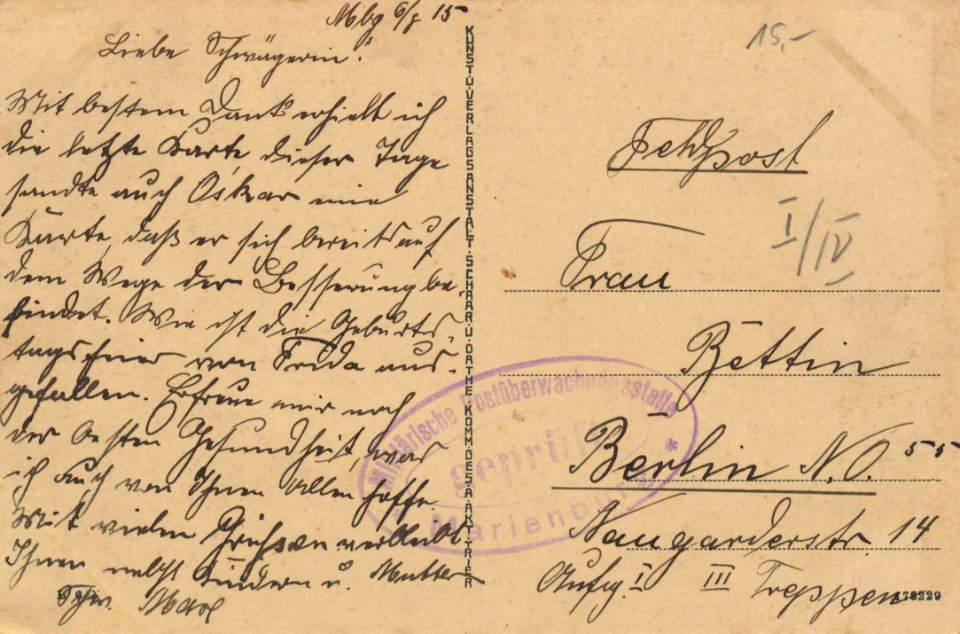 Mbg 6/8 15
Liebe Schwägerin!
Mit bestem Dank erhielt ich
die letzte Karte dieser Tage
sandte auch Oskar eine
Karte, daß er sich bereits auf
dem Wege der Besserung be-
findet. Wie ist die Geburts-
tagsfeier von Frida aus-
gefallen. Erfreue mich noch
der besten Gesundheit, was
ich auch von Ihnen allen hoffe.
Mit vielen Grüssen verbleibt
Ihnen nebst Kindern u. Mutter
Schw.
KUNST U. VERLAGSANSTALT SCHAAR U. DATHE KOMM. GES. A. AKT. TRIER
15,-
Feldpost
I/IV
Frau
Bettin
Berlin N.O. 55
Naugarderstr. 14
Aufg. I III Treppen
Militärische Postüberwachungsstelle
geprüft
* Marienburg *